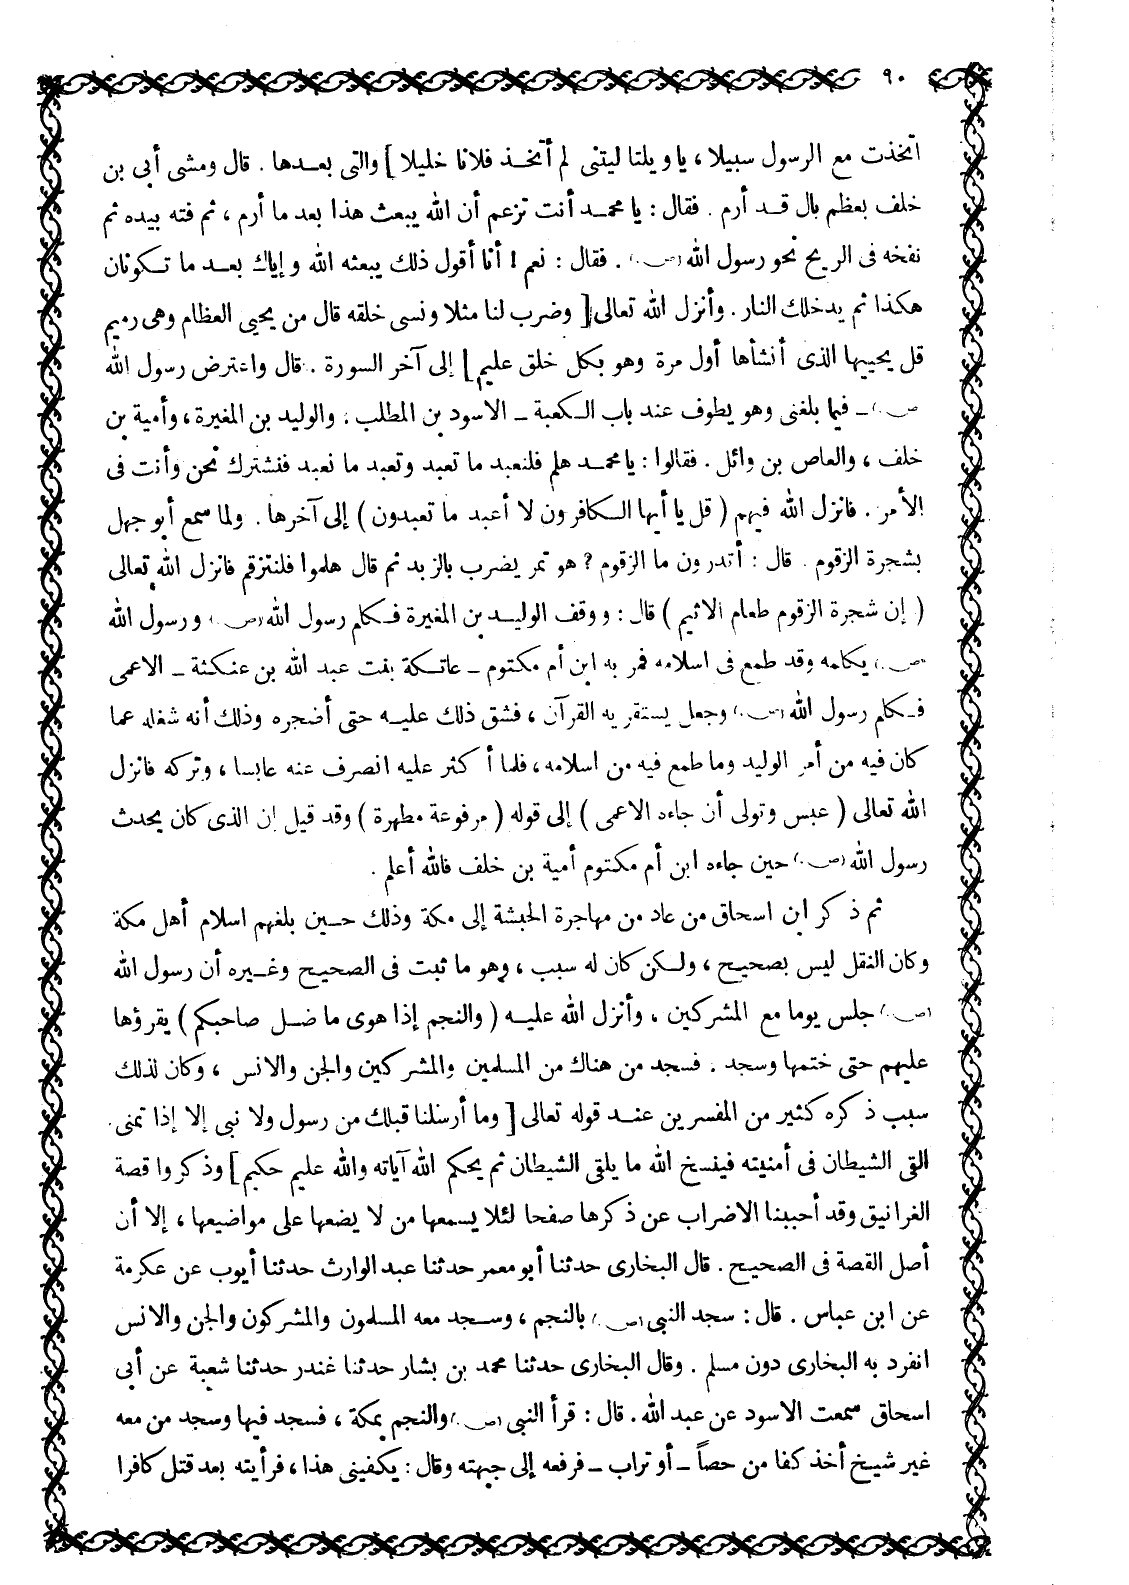 ٩٠
اتخذت مع الرسول سبيلا ، يا ويلتا ليتنى لم أتخـذ فلانا خليلا ] والتى بعـدها . قال ومشى أبي بن
خلف بعظم بال قـد أرم . فقال : يا محمـد أنت تزعم أن الله يبعث هذا بعد ما أرم ، ثم فته بيده ثم
نفخه فى الريح نحو رسول الله (ص) . فقال : نعم ! أنا أقول ذلك يبعثه الله وإياك بعـد ما تـكونان
هكذا ثم يدخلك النار . وأنزل الله تعالى [ وضرب لنا مثلا ونسى خلقه قال من يحيى العظام وهى رميم
قل يحييها الذى أنشأها أول مرة وهو بكل خلق عليم ] إلى آخر السورة . قال واعترض رسول الله
(ص) ـ فيما بلغنى وهو يطوف عند باب الـكعبة ـ الاسود بن المطلب ، والوليد بن المغيرة ، وأمية بن
خلف ، والعاص بن وائل . فقالوا : يا محمـد هلم فلنعبد ما تعبد وتعبد ما نعبد فنشترك نحن وأنت فى
الأمر . فانزل الله فيهم ( قل يا أيها الـكافرون لا أعبد ما تعبدون ) إلى آخرها . ولما سمع أبو جهل
بشجرة الزقوم . قال : أتدرون ما الزقوم ? هو تمر يضرب بالزبد ثم قال هلموا فلنتزقم فانزل الله تعالى
( إن شجرة الزقوم طعام الاثيم ) قال : ووقف الوليـد بن المغيرة فـكلم رسول الله (ص) ورسول الله
(ص) يكلمه وقد طمع فى اسلامه فمر به ابن أم مكتوم ـ عاتـكة بنت عبد الله بن عنكثة ـ الاعمى
فـكلم رسول الله (ص) وجعل يستقريه القرآن ، فشق ذلك عليـه حتى أضجره وذلك أنه شغله عما
كان فيه من أمر الوليد وما طمع فيه من اسلامه ، فلما أكثر عليه انصرف عنه عابسا ، وتركه فانزل
الله تعالى ( عبس وتولى أن جاءه الاعمى ) إلى قوله ( مرفوعة مطهرة ) وقد قيل إن الذى كان يحدث
رسول الله (ص) حين جاءه ابن أم مكتوم أمية بن خلف فالله أعلم .
ثم ذكر ابن اسحاق من عاد من مهاجرة الحبشة إلى مكة وذلك حـين بلغهم اسلام أهل مكة
وكان النقل ليس بصحيح ، ولـكن كان له سبب ، وهو ما ثبت فى الصحيح وغـيره أن رسول الله
(ص) جلس يوما مع المشركين ، وأنزل الله عليـه ( والنجم إذا هوى ما ضـل صاحبكم ) يقرؤها
عليهم حتى ختمها وسجد . فسجد من هناك من المسلمين والمشركين والجن والانس ، وكان لذلك
سبب ذكره كثير من المفسرين عنـد قوله تعالى [ وما أرسلنا قبلك من رسول ولا نبى إلا إذا تمنى
القى الشيطان فى أمنيته فينسخ الله ما يلقى الشيطان ثم يحكم الله آياته والله عليم حكيم ] وذكروا قصة
الغرانيق وقد أحببنا الاضراب عن ذكرها صفحا لئلا يسمعها من لا يضعها على مواضيعها ، إلا أن
أصل القصة فى الصحيح . قال البخارى حدثنا أبو معمر حدثنا عبد الوارث حدثنا أيوب عن عكرمة
عن ابن عباس . قال : سجد النبى (ص) بالنجم ، وسـجد معه المسلمون والمشركون والجن والانس
انفرد به البخارى دون مسلم . وقال البخارى حدثنا محمد بن بشار حدثنا غندر حدثنا شعبة عن أبى
اسحاق سمعت الاسود عن عبد الله . قال : قرأ النبى (ص) والنجم بمكة ، فسجد فيها وسجد من معه
غير شيخ أخذ كفا من حصاً ـ أو تراب ـ فرفعه إلى جبهته وقال : يكفينى هذا ، فرأيته بعد قتل كافرا